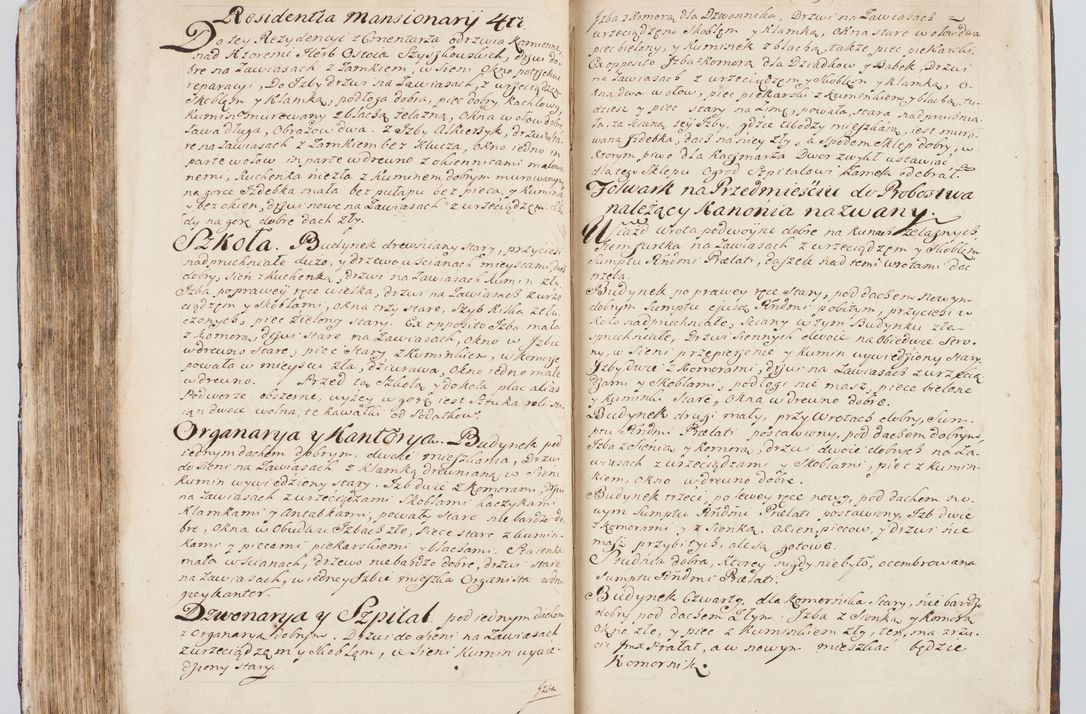 Residentia Mansionarij 4ti
Do tey Rezydencyi z Cmentarza odrzwia kamienne,
nad ktoremi Herb Ostoia Szyszkowskich, drzwi do-
bre na Zawiasach z Zamkiem, w Sieni Okno potrzebne
reparacyi, Do Izby drzwi na Zawiasach, z wrzeciądzem
Skoblem y Klamką, podłoga dobra, piec dobry kachlowy,
Kumin murowany z blachą żelazną, Okna w ołow dobre,
Ława długa, Obrazow dwa. z Izby Alkierzyk, drzwi sta-
re na Zawiasach z Zamkiem bez Klucza, okno iedno in
parte w ołow in parte w drewno z okiennicami malowa-
nemi, Kuchenka niezła z Kuminem dobrym murowanym
na gorce Izdebka mała bez pułapu bez pieca, y Kumina
y bez okien, drzwi nowe na Zawiasach z wrzeciądzem,
dy na gorę dobre dach zły.
Szkoła. Budynek drewniany stary, przyciesi
nadpruchniałe dużo, y drzewo w ścianach mieyscami, dach
dobry, Sień z kuchenką, drzwi na Zawiasach Kumin zły,
Izba po prawey ręce wielka, drzwi na Zawiasach z wrze-
ciądzem y skoblami, okna trzy stare, Szyb kilka ztłu-
czonych, piec zielony stary. Ex opposito Izba mała
z Komorą, drzwi stare na Zawiasach, okno w Izbie
w drewno stare, piec stary z Kuminkiem, w Komorze
powała w mieyscu zła, dziurawa, okno iedno małe
w drewno. Przed tą Szkołą y dokoła plac alias
Podworze obszerne, wyżey w gorę iest Sztuka roli sta-
ian dwoie wolna, te kawałki od Podatkow.
Organarya y Kantorya. Budynek pod
iednym dachem dobrym, dwoie mieszkania, Drzwi
do Sieni na Zawiasach z Klamką drewnianą w Sieni
Kumin wywiedziony stary. Izb dwie z Komorami, drzwi
na Zawiasach z wrzeciądzami Skoblami haczykami
Klamkami y Antabkami, powały stare nie bardzo do-
bre, okna w Obudwu Izbach złe, piece stare z kumin-
kami y piecami piekarskiemi y blachami. Stasienka
mała w ścianach, drzewo nie bardzo dobre, drzwi stare
na Zawiasach, w iedney Izbie mieszka Organista w dru-
giey Kantor.
Dzwonarya y Szpital pod iednym dachem
z Organarya dobrym. Drzwi do Sieni na Zawiasach
z wrzeciądzem y Skoblem, w Sieni Kumin wywie-
dziony stary.
Izba
Izba z Komorą dla Dzwonnika, Drzwi na Zawiasach
wrzeciądzem Skoblem y Klamką, Okna stare w ołow dwa
piec bielony, y Kuminek z blachą, także piec piekarski.
Ex opposito Izba z Komorą dla Dziadkow y Babek, Drzwi
na Zawiasach z wrzeciądzem y Skoblem y Klamką, O-
kna dwa w ołow, piec piekarski z Kuminkiem y blachą, tu-
dziesz y piec stary na Zimę, powała, stara nadpruchnia-
ła, za ścianą tey Izby, gdzie Ubodzy mieszkaią, iest muro-
wana Izdebka, dach na niey zły, a spodem Sklep dobry, w
ktorym piwo dla Kaczmarza Dwor zwykł ustawiać
dla tego Sklepu Ogrod Szpitalowi Zamek odebrał.
Folwark na Przedmieściu do Probostwa
należący Kanonia nazwany.
Wiazd wrota podwoyne dobre na Kunach żelaznych
Item furtka na Zawiasach z wrzeciądzem y Skoblem
Sumptu Rndmi Prælati, daszek nad temi wrotami dać
trzeba.
Budynek po prawey ręce stary, pod dachem Nowym
dobrym Sumptu ejusd Rndmi pobitym, przyciesi w
koło nadpruchniałe, ściany w tym Budynku zła-
spruchniałe, drzwi Siennych dwoie na Obiedwie Stro-
ny, w Sieni przepierzenie y Kumin wywiedziony stary.
Izby dwie z Komorami, drzwi na Zawiasach z wrzecią-
dzami y Skoblami, podłogi nie masz, piece bielone
y Kuminki stare, okna w drewno dobre.
Budynek drugi mały, przy Wrotach dobry, Sum-
ptu Rndmi Prælati postawiony, pod dachem dobrym,
Izba z Sienią y Komorą, drzwi dwoie dobrych na Za-
wiasach z wrzeciądzami y Skoblami, piec z Kumin-
kiem, okno w drewno dobre.
Budynek trzeci po lewey ręce nowy, pod dachem no-
wym Sumptu Rndmi Prælati postawiony, Izb dwie
z Komorami y z Sionką, okien, piecow, y drzwi nie
masz przybitych, ale są gotowe.
Studnia dobra, ktorey nigdy nie było, ocembrowana
Sumptu Rndmi Prælati.
Budynek Czwarty, dla Komornika stary, nie bardzo
dobry pod dachem Złym. Izba z Sionką y Komorą
Okna złe, y piec z Kuminkiem zły, ten, ma zrzu-
cić Jmć Prałat, a w nowym mieszkać będzie
Komornik.